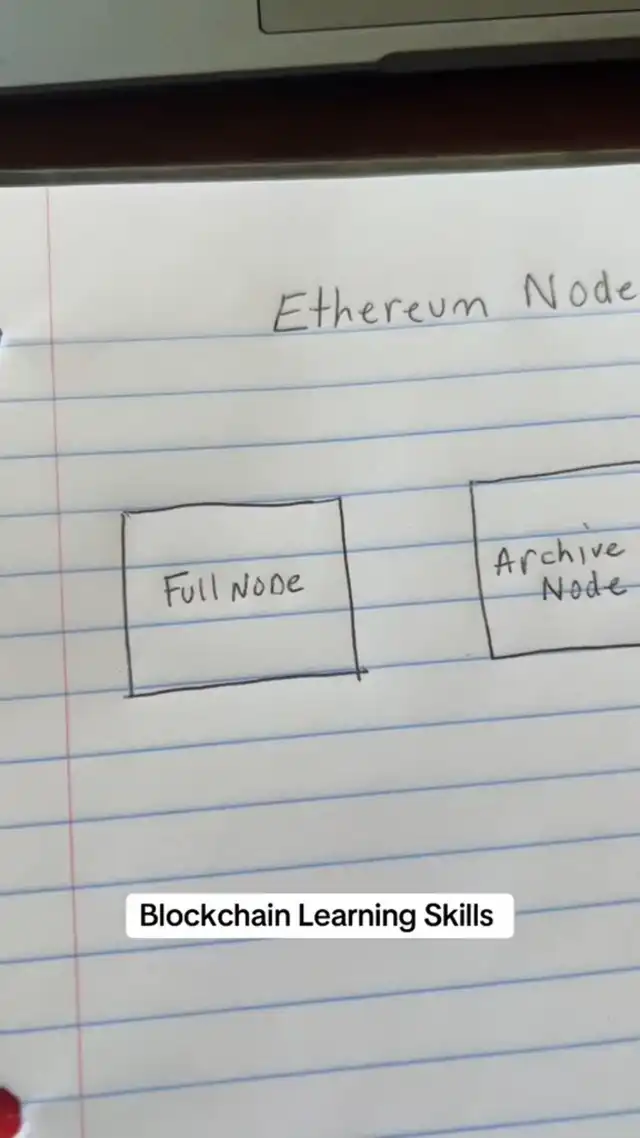 Ethereum Node
Full NODE
Archive
Node
Blockchain Learning Skills